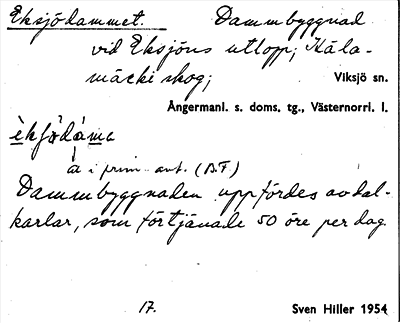 Eksjödammet. Dammbyggnad
vid Eksjöns utlopp; Käla-
märki skog; Viksjö sn.
Ångermanl. s. doms. tg., Västernorrl. l.
a i prim. ant. (B.F)
Dammbyggnaden uppfördes av dal-
karlar, som förtjänade 50 öre per dag.
17. Sven Hiller 1954